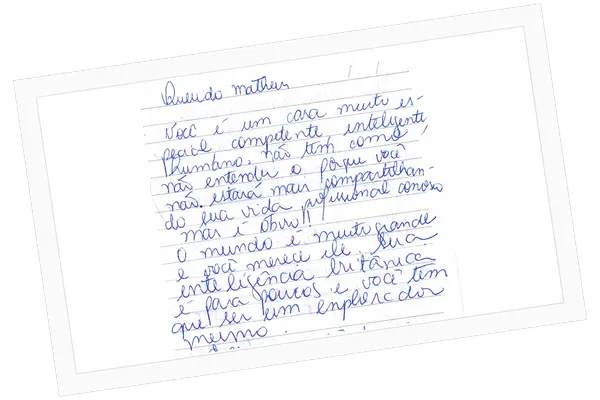 Querido Matheus
Você é um cara muito es-
pecial competente inteligente
humano, não tem como
não entender o porque você
não estará mais compartilhan-
do sua vida profissional conosco
mas é óbvio!!
O mundo é muito grande
e você merece ele, sua
inteligência britânica
é para poucos e você tem
que ser um explorador
mesmo.